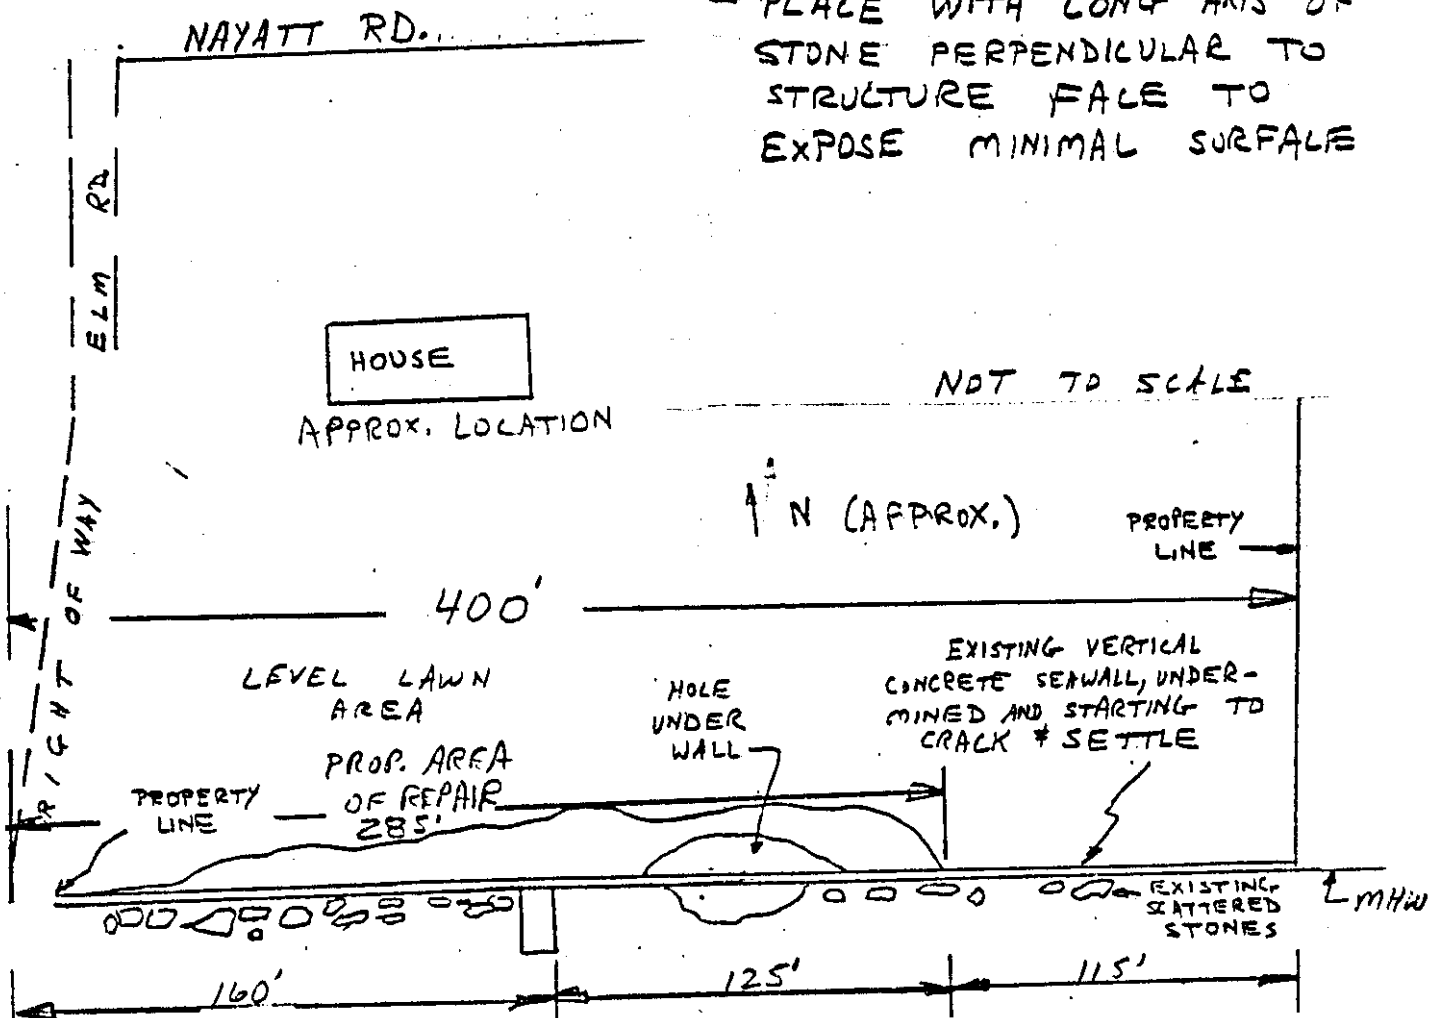 PLACE WITH LONG AXIS OF
STONE PERPENDICULAR TO
STRUCTURE FACE TO
EXPOSE MINIMAL SURFACE
NAYATT RD.
ELM RD.
RIGHT OF WAY
HOUSE
APPROX. LOCATION
NOT TO SCALE
N (APPROX.)
PROPERTY
LINE
400'
LEVEL LAWN
AREA
HOLE
UNDER
WALL
EXISTING VERTICAL
CONCRETE SEAWALL, UNDER-
MINED AND STARTING TO
CRACK & SETTLE
PROP. AREA
OF REPAIR
285'
PROPERTY
LINE
EXISTING
SCATTERED
STONES
MHW
160'
125'
115'